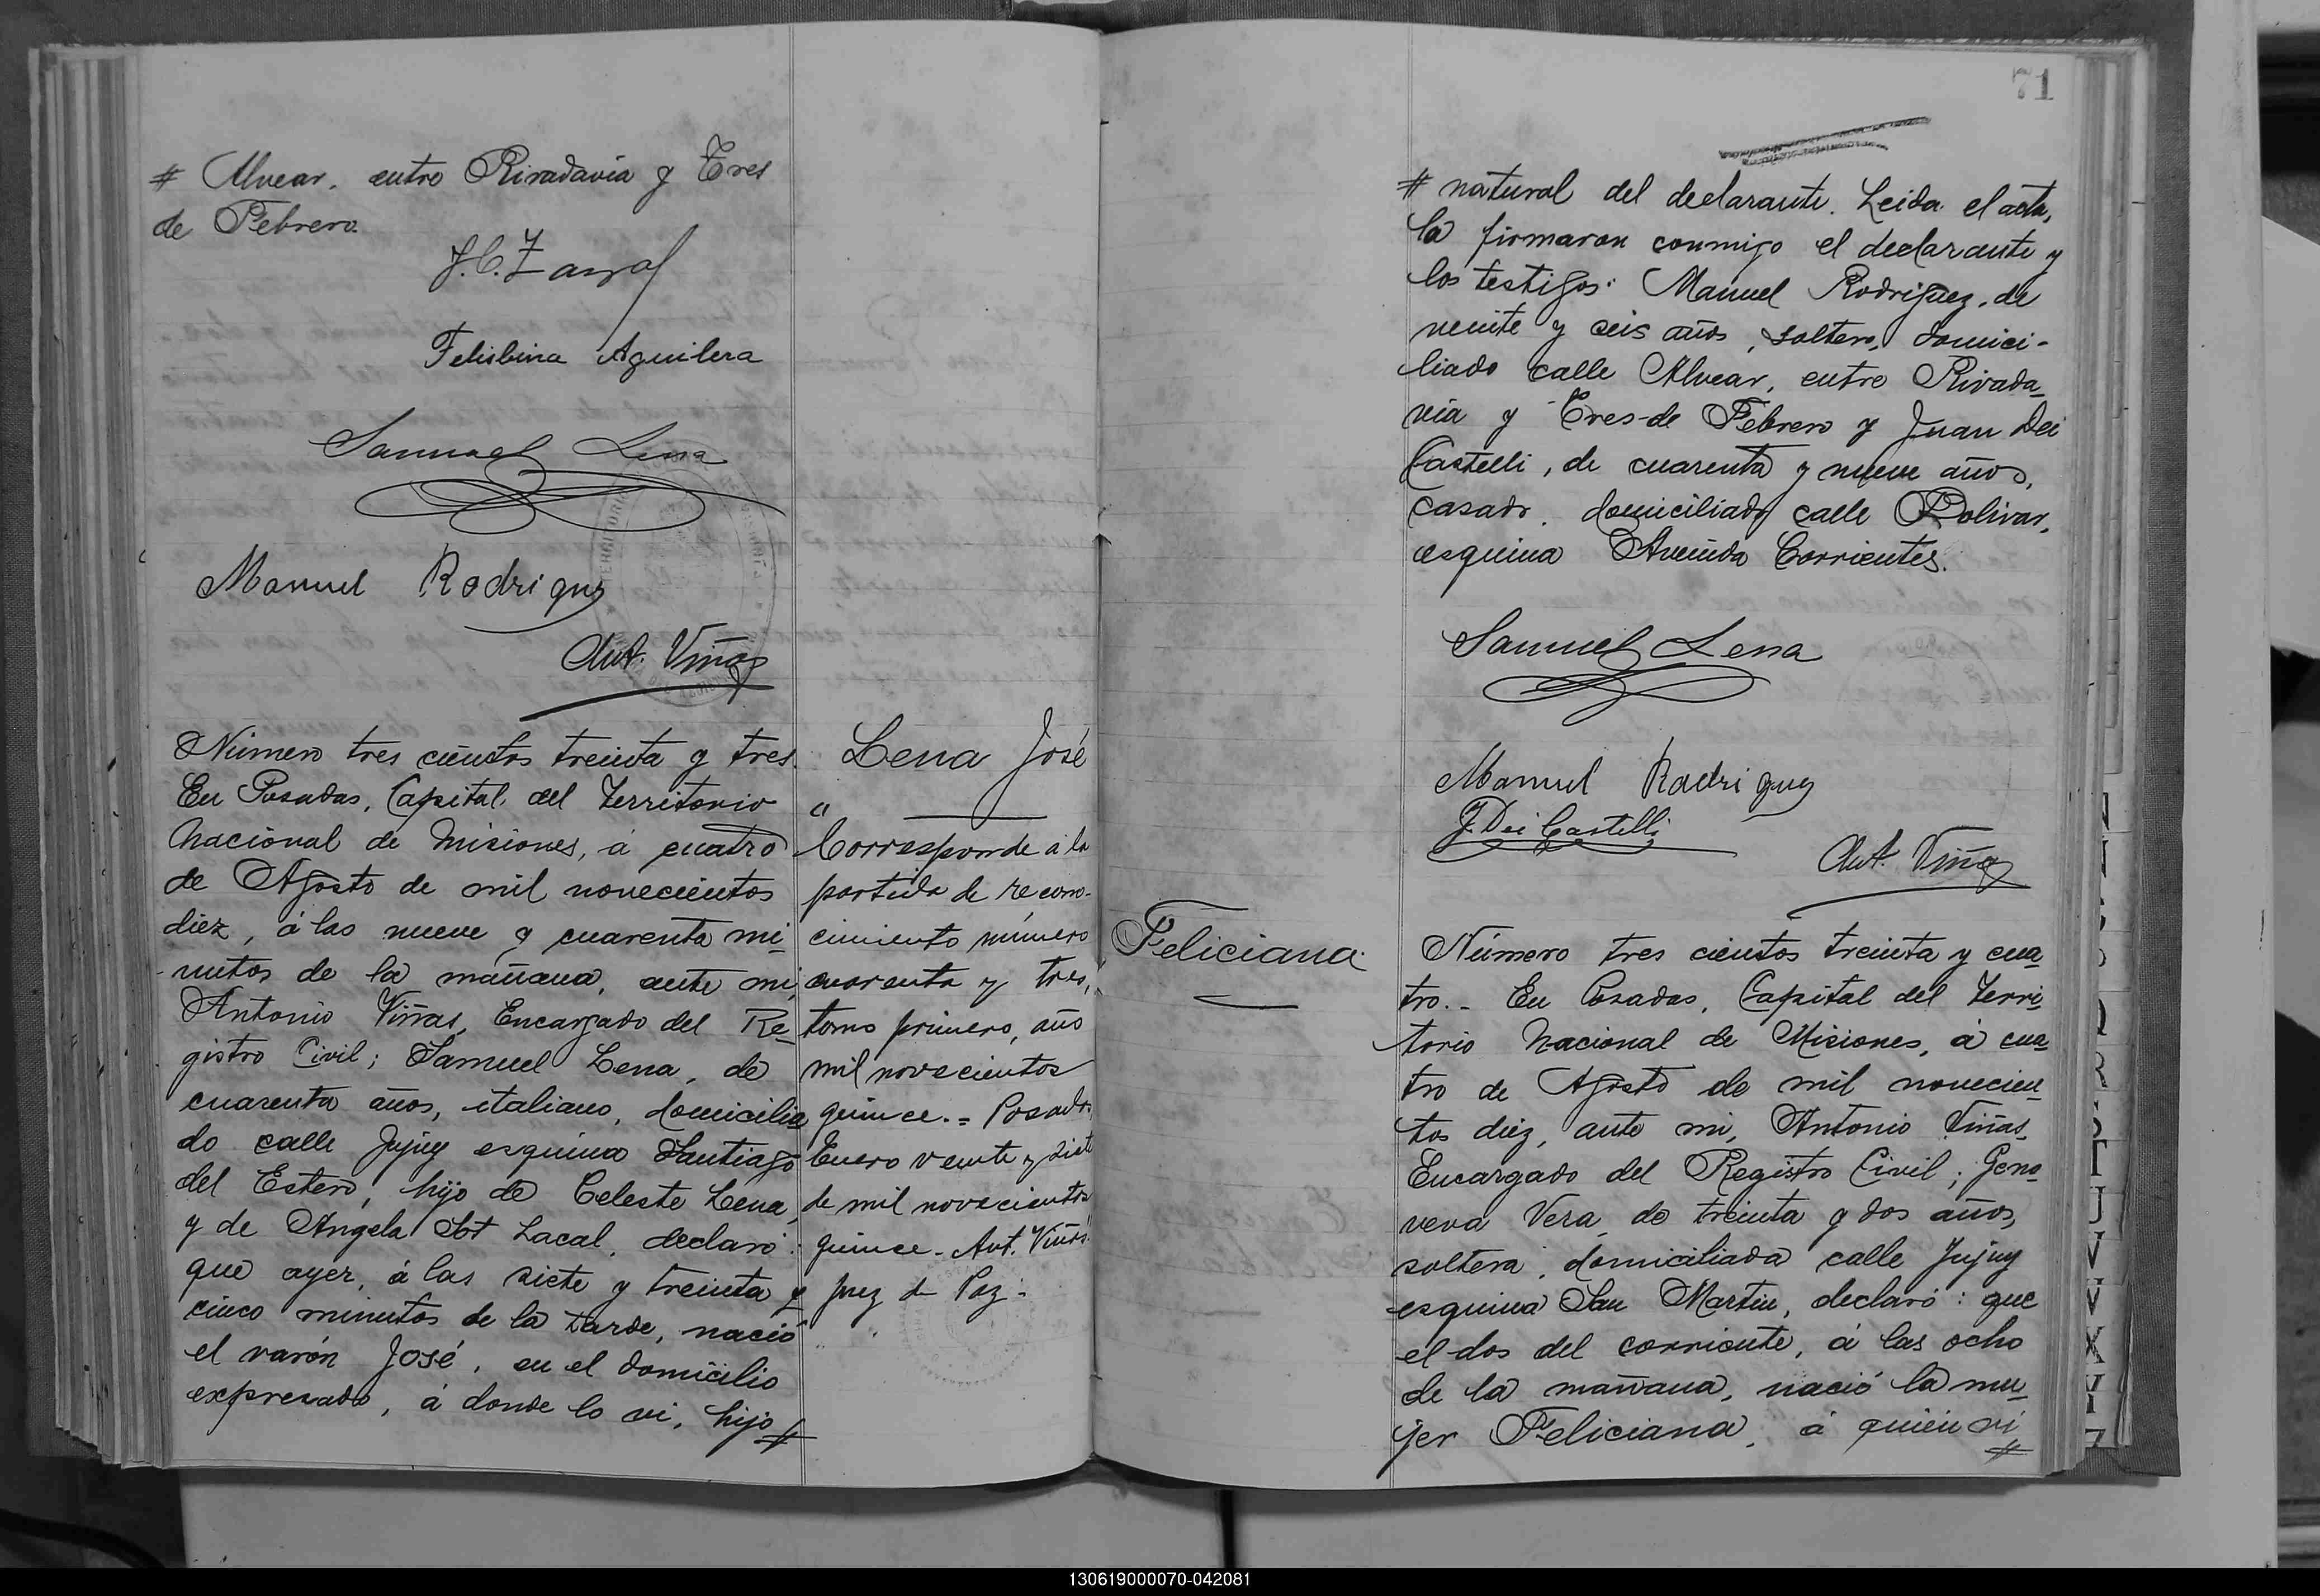 # Alvear, entre Rivadavia y Tres
de Febrero.
Felisbina Aguilera
Samuel Lena
Manuel Rodriguez
Ant. Viñas
Número tres cientos treinta y tres.
En Posadas, Capital del Territorio
Nacional de Misiones, á cuatro
de Agosto de mil novecientos
diez, á las nueve y cuarenta mi-
nutos de la mañana, ante mi,
Antonio Viñas, Encargado del Re-
gistro Civil; Samuel Lena, de
cuarenta años, italiano, domicilia
do calle Jujuy esquina Santiago
del Estero, hijo de Celeste Lena,
y de Angela Lacal, declaró:
que ayer, á las siete y treinta y
cinco minutos de la tarde, nació
el varón José, en el domicilio
expresado, á donde lo vi, hijo #
Lena José
"
Corresponde a la
partida de recono-
cimiento número
cuarenta y tres,
tomo primero, año
mil novecientos
quince.= Posadas
Enero veinte y siete
de mil novecientos
quince - Ant. Viñas
juez de Paz -
71
# natural del declarante. Leida el acta,
la firmaron conmigo el declarante y
los testigos: Manuel Rodriguez, de
veinte y seis años, soltero, domici-
liado calle Alvear, entre Rivada-
via y Tres de Febrero y Juan Dei
Castelli, de cuarenta y nueve años,
casado, domiciliado calle Bolivar,
esquina Avenida Corrientes.
Samuel Lena
Manuel Rodriguez
J. Dei Castelli
Ant. Viñas
Feliciana
Número tres cientos treinta y cua-
tro. - En Posadas, Capital del Terri-
torio Nacional de Misiones, á cua-
tro de Agosto de mil novecien-
tos diez, ante mi, Antonio Viñas,
Encargado del Registro Civil; Geno-
veva Vera, de treinta y dos años,
soltera, domiciliada calle Jujuy
esquina San Martin, declaró: que
el dos del corriente, á las ocho
de la mañana, nació la mu-
jer Feliciana, á quien vi
#
R
T
U
V
V
X
Y
Z
130619000070-042081